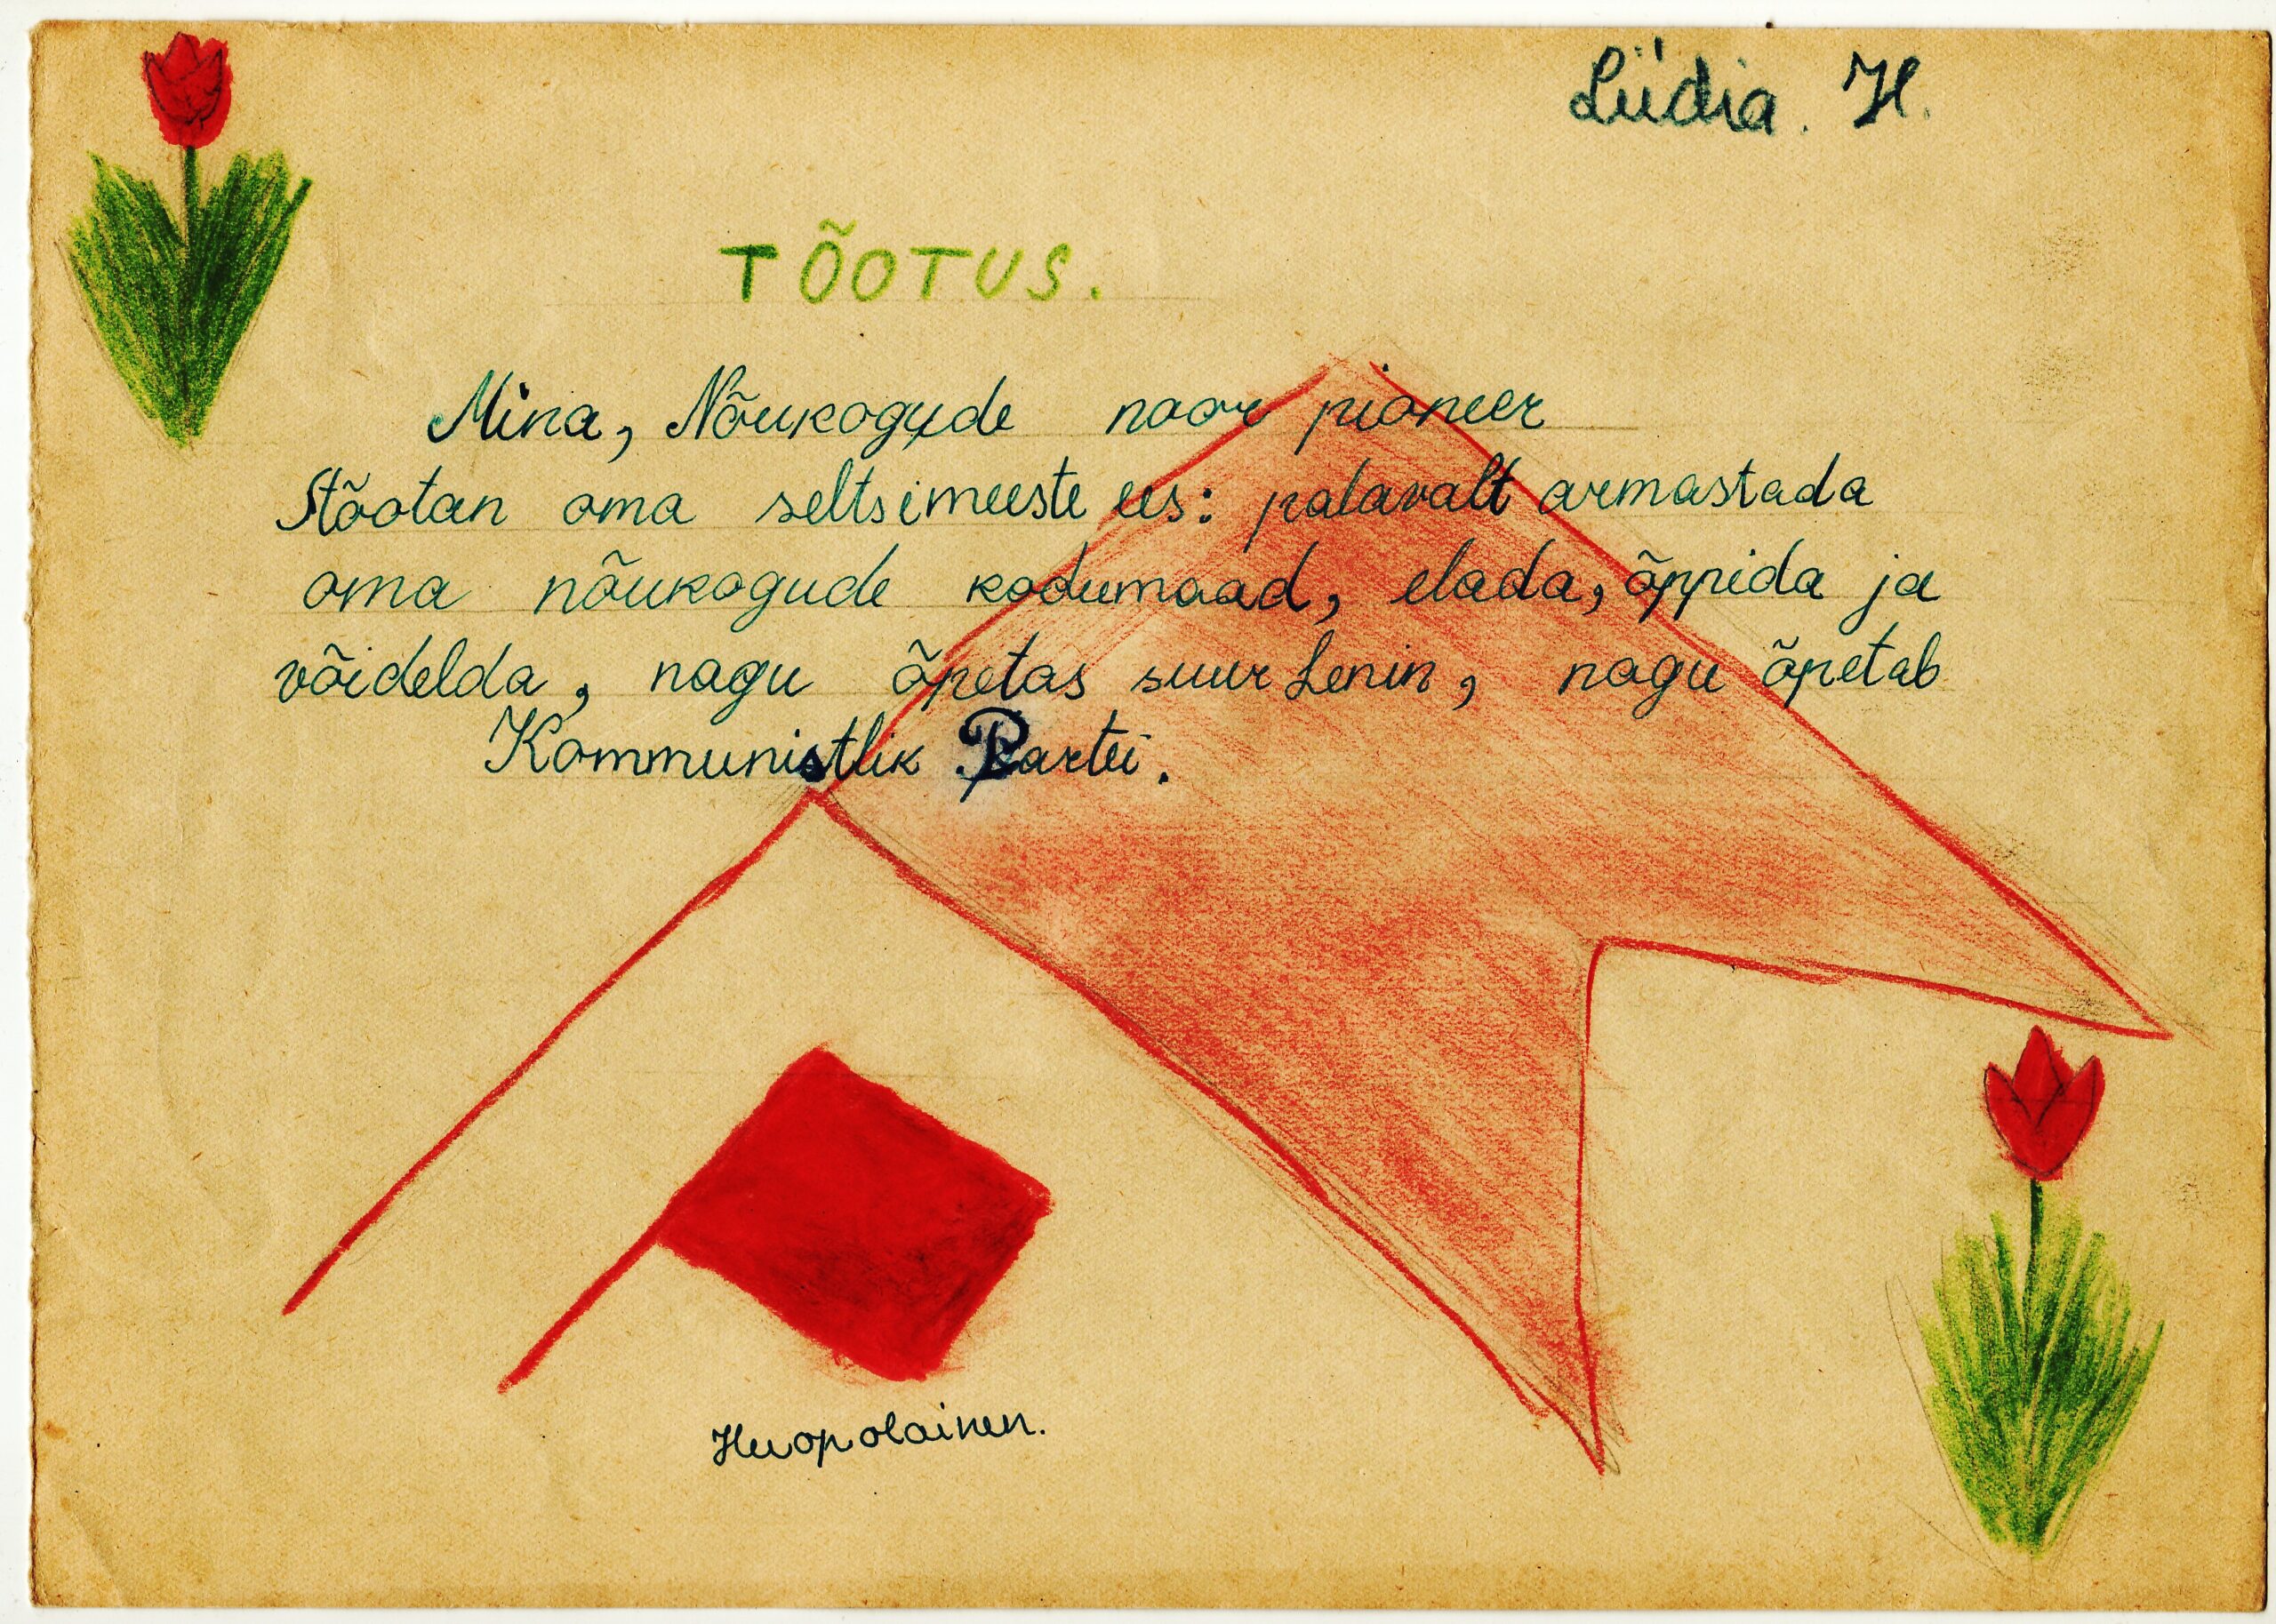 Liidia. H.
TÕOTUS.
Mina, Nõukogude noor pioneer
tõotan oma seltsimeeste ees: palavalt armastada
oma nõukogude kodumaad, elada, õppida ja
võidelda, nagu õpetas suur Lenin, nagu õpetab
Kommunistlik Partei.
Huopolainen.